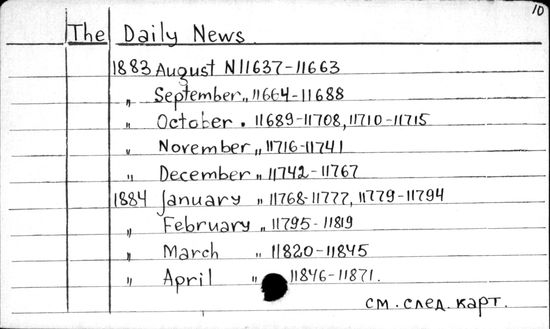 10
The Daily News.
1883 August N11637-11663
„ September „ 11664-11688
„ October „ 11689-11708, 11710-11715
„ November „ 11716-11741
„ December „ 11742-11767
1884 January „ 11768-11777, 11779-11794
„ February „ 11795-11819
„ March „ 11820-11845
„ April „ 11846-11871.
см. след. карт.